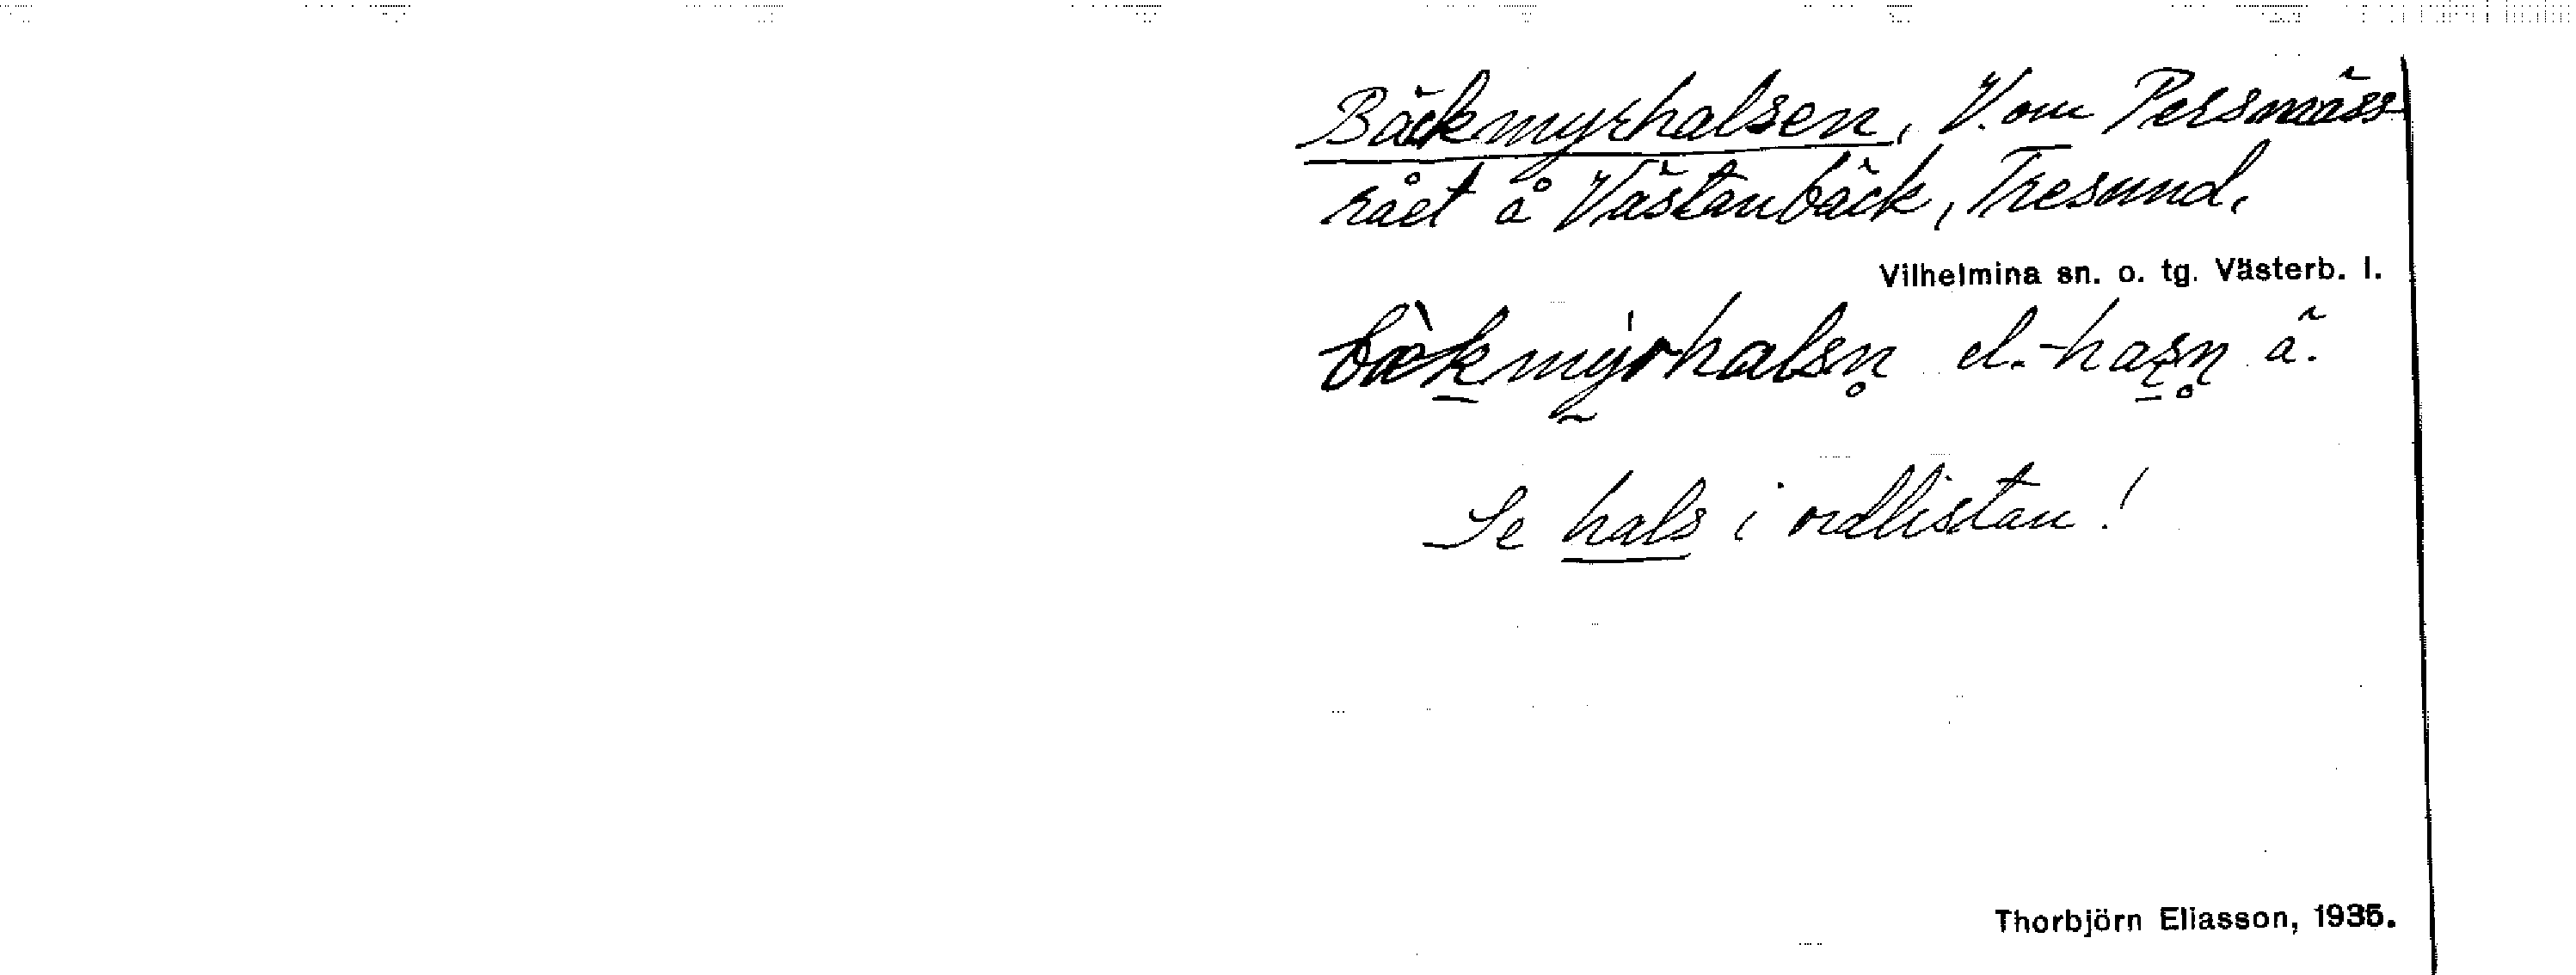 Bäckmyrhalsen, V. om Persmäss-
rået å Västanbäck, Tresund.
Vilhelmina sn. o. tg. Västerb. l.
bæ̀kmy̍rhalsn̥ el. -hasn̥ ä.
Se hals i ordlistan!
Thorbjörn Eliasson, 1935.